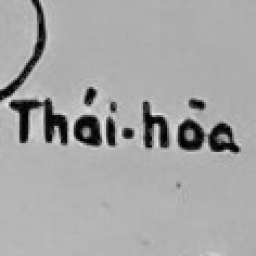 Thái-hòa